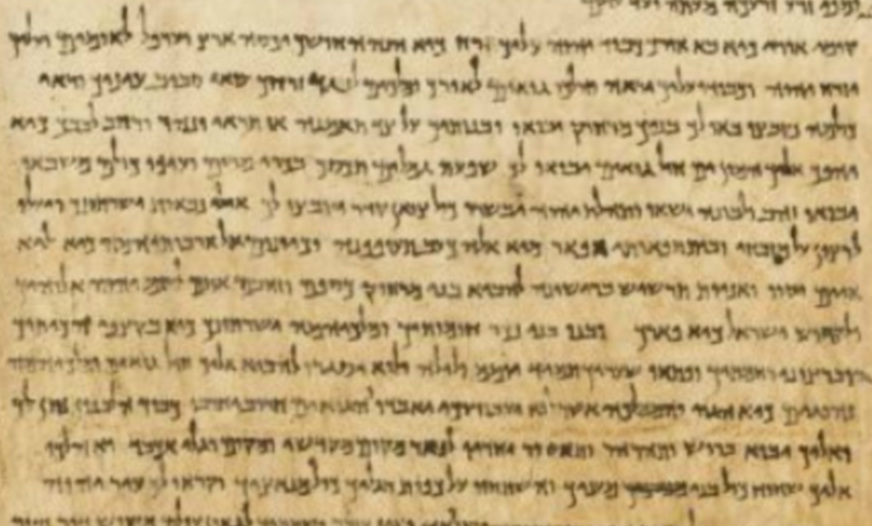 זרע זרעכה מעתה ועד עולם
קומי אורי כיא בא אורך וכבוד יהוה עליך זרח כיא הנה החושך יכסה ארץ וערפל לאומים ועליך
יזרח יהוה וכבודו עליך יראה והלכו גואים לאורך ומלכים לנגד זרחך שאי סביב עיניך וראי
כולמה נקבצו באו לך בניך מרחוק יבואו ובנותיך על צד תאמנה אז תראי ונהרת ורהב לבבך כיא
יהפך אליך המון ים חיל גואים יבואו לך שפעת גמלים תכסך
יבואו זהב ולבונה ישאו ותהלת יהוה יבשרו כול צואן קדר יקבצו לך אילי נביאות ישרתונך ויעלו
לרצון על מזבחי ובית תפארתי אפאר מיא אלה כעב תעופפנה וכיונים אל ארבותיהמה כיא ליא
איים יקוו ואניות תרשיש ברישונה להביא בני מרחוק כספם וזהבם אתם לשם יהוה אלוהיך
ולקדוש ישראל כיא פארך ובנו בני נכר חומותיך ומלכיהמה ישרתונך כיא בקצפי הכיתיך
וברצוני רחמתיך ופתחו שעריך תמיד יומם ולילה ולוא יסגרו להביא אליך חיל גואים ומלכיהמה
נהוגים כיא הגוי והממלכה אשר לוא יעובדוך יואבדו והגואים חרוב יחרבו כבוד הלבנון נתן לך
ואליך יבוא ברוש ותהרהר ותאשור יחדיו לפאר מקום מקדשי ומקום רגלי אכבד והלכו
אליך שחוח כול בני מעניך והשתחוו על כפות רגליך כול מנאציך וקראו לך עיר יהוה